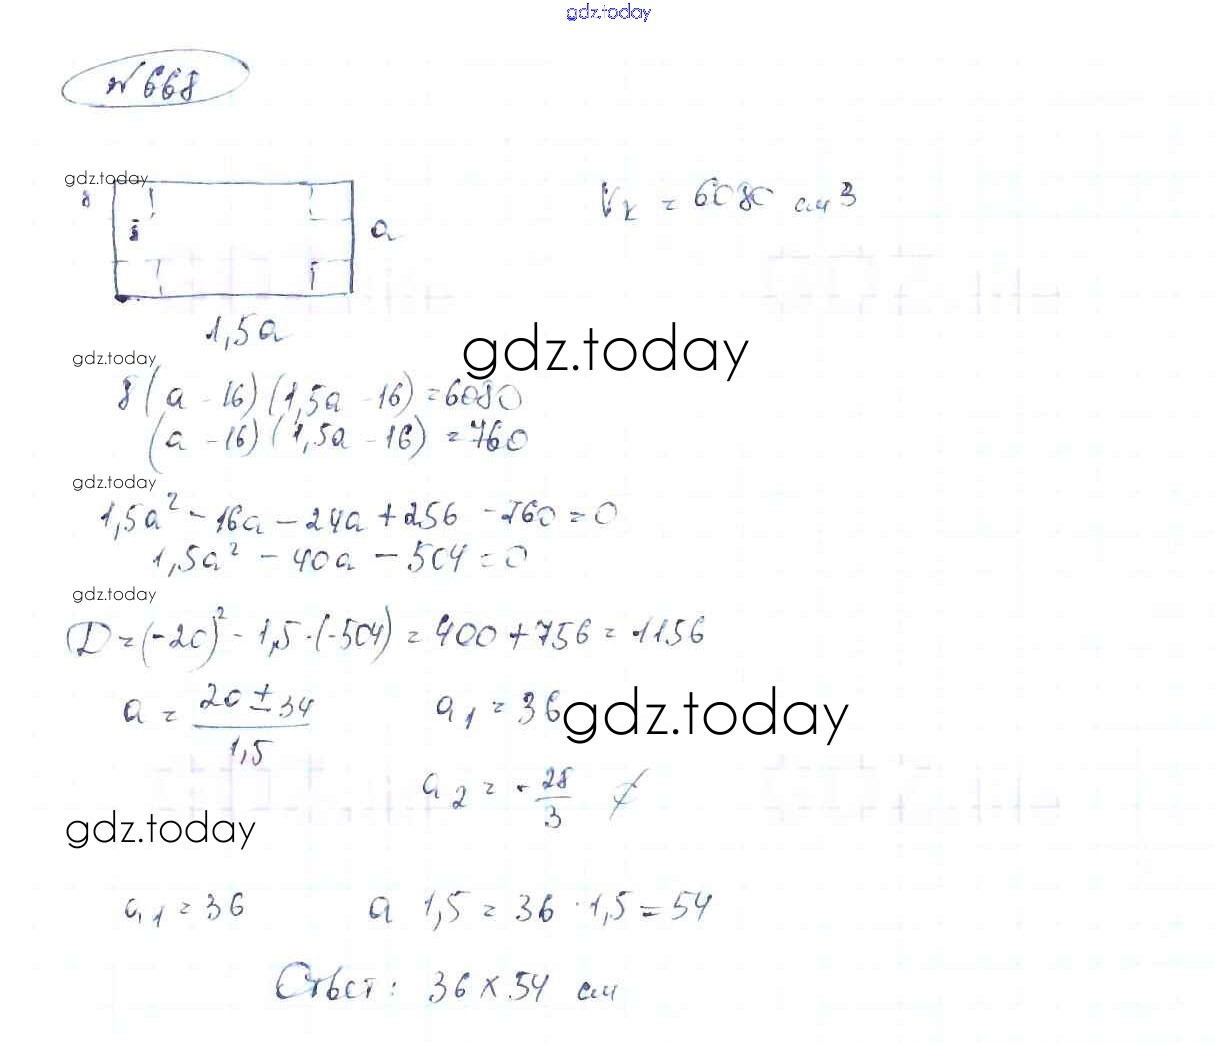 gdz.today
№ 668
gdz.today
8
a
Vк = 6080 см³
1,5a
gdz.today
gdz.today
8(a - 16)(1,5a - 16) = 6080
(a - 16)(1,5a - 16) = 760
gdz.today
1,5a² - 16a - 24a + 256 - 760 = 0
1,5a² - 40a - 504 = 0
gdz.today
D = (-20)² - 1,5·(-504) = 400 + 756 = 1156
a = (20 ± 34)/1,5 a₁ = 36
gdz.today
a₂ = -28/3 ≠
gdz.today
a₁ = 36 a 1,5 = 36 · 1,5 = 54
Ответ: 36 × 54 см